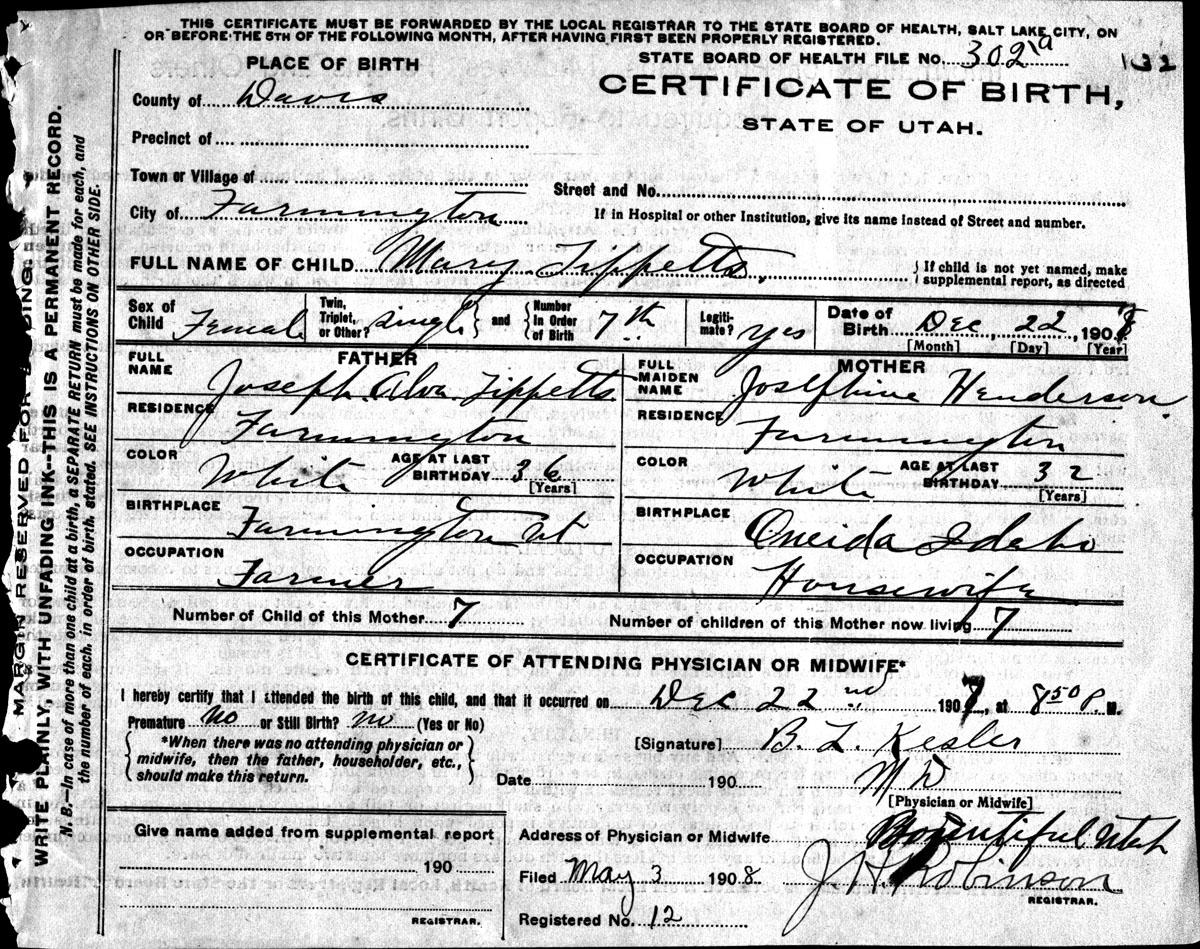 THIS CERTIFICATE MUST BE FORWARDED BY THE LOCAL REGISTRAR TO THE STATE BOARD OF HEALTH, SALT LAKE CITY, ON
OR BEFORE THE 5TH OF THE FOLLOWING MONTH, AFTER HAVING FIRST BEEN PROPERLY REGISTERED.
STATE BOARD OF HEALTH FILE No. 302 a
132
PLACE OF BIRTH
CERTIFICATE OF BIRTH,
STATE OF UTAH.
County of Davis
Precinct of
Town or Village of
Street and No.
City of Farmington
If in Hospital or other Institution, give its name instead of Street and number.
FULL NAME OF CHILD Mary Tippetts,
If child is not yet named, make
supplemental report, as directed
Sex of Child Female
Twin, Triplet, or Other? single and Number in Order of Birth 7th
Legitimate? yes
Date of Birth Dec 22, 190
[Month] [Day] [Year]
FATHER
FULL NAME Joseph Alva Tippetts
RESIDENCE Farmington
COLOR White AGE AT LAST BIRTHDAY 36
[Years]
BIRTHPLACE Farmington ut
OCCUPATION Farmer
MOTHER
FULL MAIDEN NAME Josephine Henderson
RESIDENCE Farmington
COLOR White AGE AT LAST BIRTHDAY 32
[Years]
BIRTHPLACE Oneida Idaho
OCCUPATION Housewife
Number of Child of this Mother 7 Number of children of this Mother now living 7
CERTIFICATE OF ATTENDING PHYSICIAN OR MIDWIFE*
I hereby certify that I attended the birth of this child, and that it occurred on Dec 22nd 1907, at 8 50 P. M.
Premature No or Still Birth? no (Yes or No)
*When there was no attending physician or
midwife, then the father, householder, etc.,
should make this return.
[Signature] B. L. Kesler
Date 190 M D
[Physician or Midwife]
Give name added from supplemental report
190
REGISTRAR.
Address of Physician or Midwife Bountiful Utah
Filed May 3 1908 J H Robinson
REGISTRAR.
Registered No. 12
MARGIN RESERVED FOR BINDING.
WRITE PLAINLY, WITH UNFADING INK—THIS IS A PERMANENT RECORD.
N. B.—In case of more than one child at a birth, a SEPARATE RETURN must be made for each, and
the number of each, in order of birth, stated. SEE INSTRUCTIONS ON OTHER SIDE.